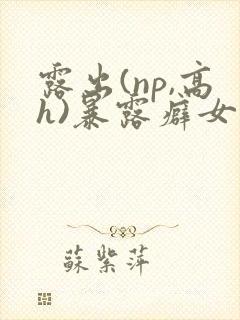 露出(np,高
h)暴露癖女
蘇紫萍